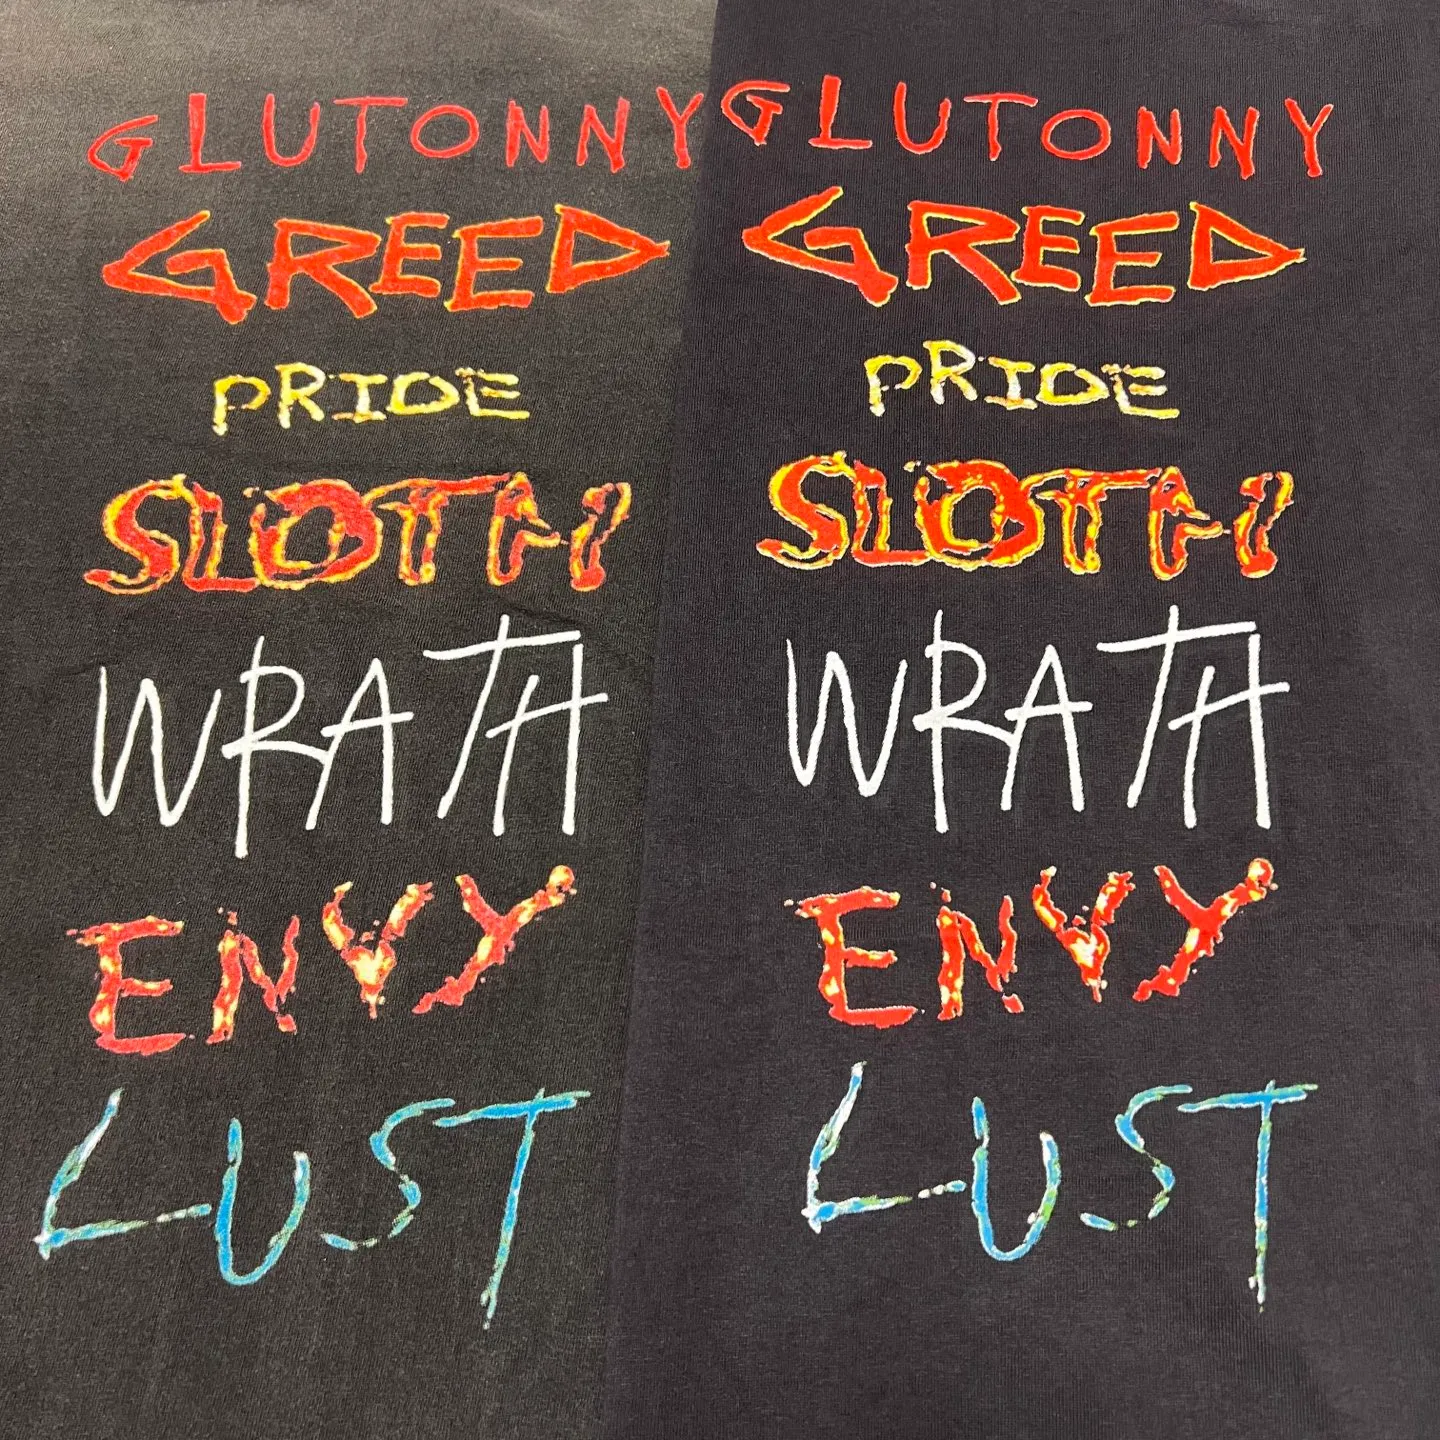 GLUTONNY GLUTONNY
GREED GREED
PRIDE PRIDE
SLOTH SLOTH
WRATH WRATH
ENVY ENVY
LUST LUST